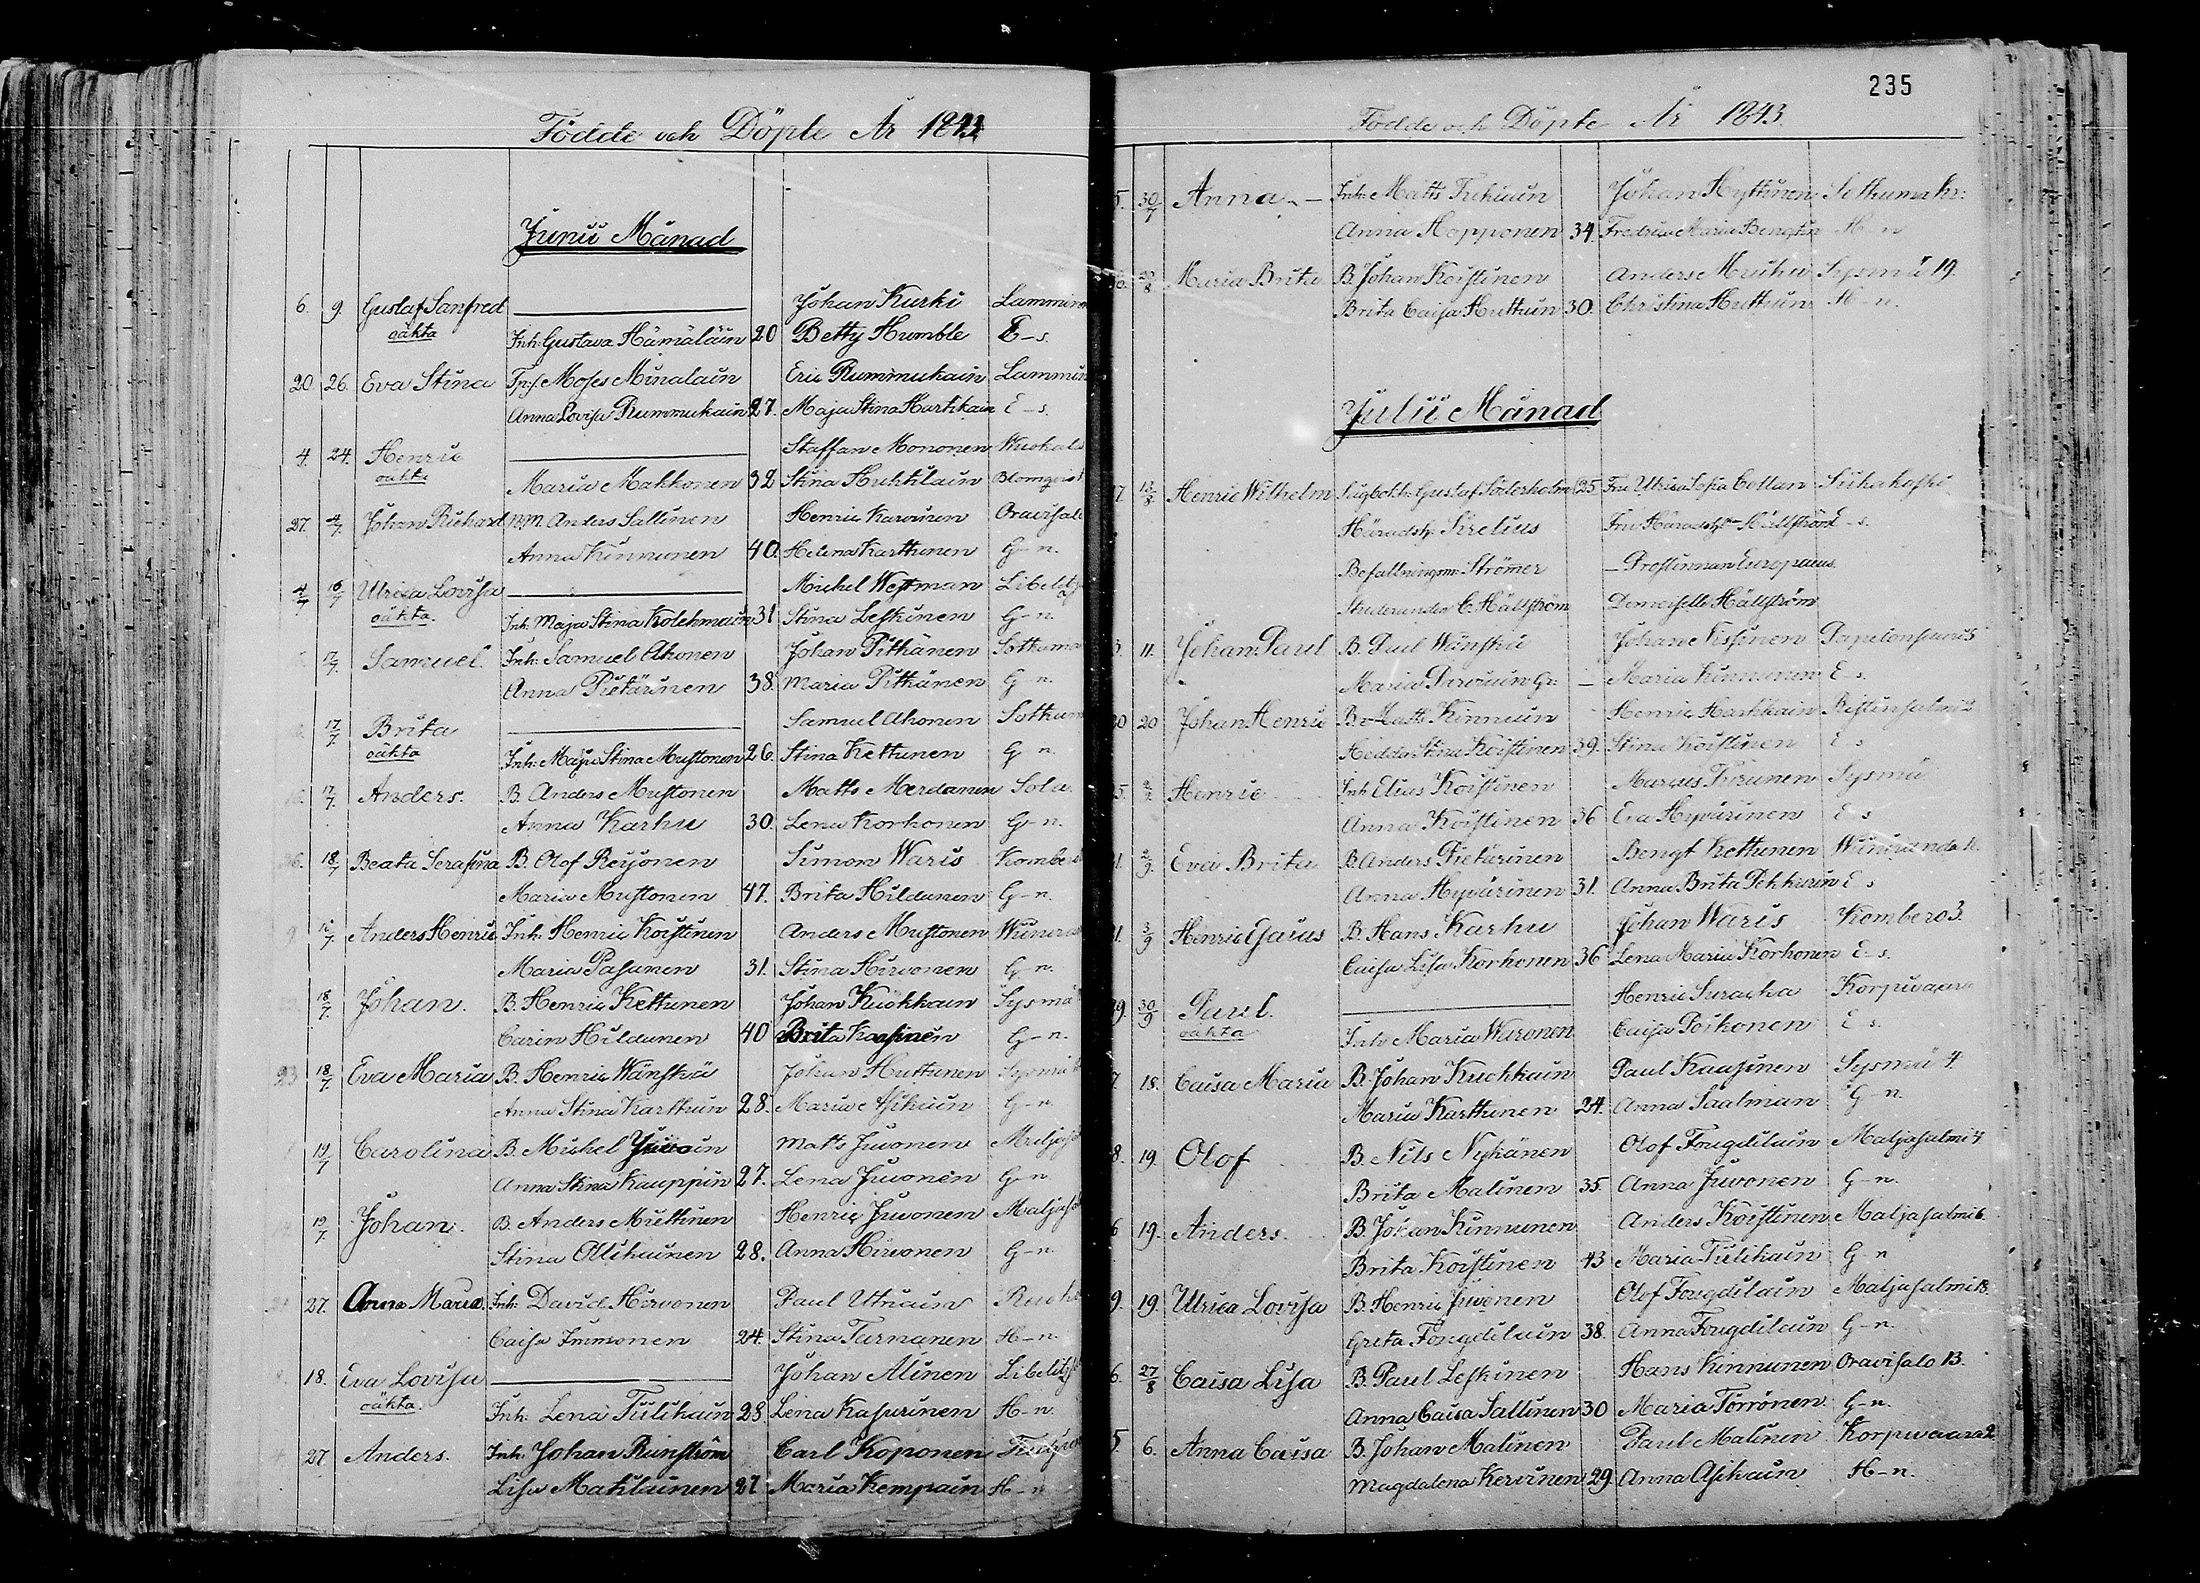 Födde och Döpte År 1843
Junii Månad
6. 9. Gustaf Sanfred Johan Kurki Lammin
oäkta Inh: Gustava Hämäläin 20 Betty Humble E-s.
20 26. Eva Stina Moses Minalain Eric Rummukain Lammin
Anna Lovisa Rummukain 27. Maja Stina Hartikain E-s.
4. 24. Henric Staffan Mononen Wuokala
oäkta Maria Makkonen 32 Stina Huktilain Blomqvist
27. 4/7 Johan Richard Anders Sallinen Henric Karvinen Oravisalo
Anna Kinnunen 40. Helena Karttunen G-n.
4/7 16/7 Ulrica Lovisa Michel Westman Libelitz
oäkta. Inh: Maja Stina Kolehmain 31 Stina Leskinen G-n.
17/7. Samuel. Inh: Samuel Ahonen Johan Pitkänen Sotkuma
Anna Pietärinen 38. Maria Pitkänen G-n.
17/7. Brita Samuel Ahonen Sotkum
oäkta Inh: Maja Stina Mustonen 26. Stina Kettunen G n.
17/7. Anders. B. Anders Mustonen Matts Merdanen Sola
Anna Karhu 30. Lena Korhonen G-n.
18/7 Beata Serafina B. Olof Reijonen Simon Waris Kombe
Maria Mustonen 47. Brita Hildunen G-n.
Anders Henric Inh: Henric Koistinen Anders Mustonen
Maria Pasanen 31. Stina Hirvonen G-n.
18/7. Johan. B. Henric Kettunen Johan Kuokkain Sysmä
Carin Hildunen 40 Brita Kaasinen G-n.
23 18/7. Eva Maria B. Henric Wänskä Johan Huttunen Sysmä
Anna Stina Karttuin 28. Maria Asikain G-n.
19/7 Carolina B. Michel Juvoin Matts Juvonen Maljasal
Anna Stina Kauppin 27. Lena Juvonen G-n
19/7 Johan. B. Anders Muttunen Henric Juvonen Maljasal
Stina Ollikainen 28. Anna Hirvonen G-n
27. Anna Maria. Inh: David Hirvonen Paul Utriain
Caisa Immonen 24. Stina Turnanen H-n.
18. Eva Lovisa Johan Alinen Libelitz
oäkta. Inh: Lena Tiilikain 28 Lena Kasurinen H-n.
27 Anders. Inh: Johan Renström Carl Koponen
Lisa Maklainen 27 Maria Kempain H-n
235
Födde och Döpte År 1843.
5. 30/7 Anna Inh: Matts Johan Hyttinen Sotkuma
Anna Hopponen 34. Fredrica Maria Bengtsn H-n
20/8 Maria Brita B. Johan Koistinen Anders Muhu Sysmä 19.
Brita Caisa Huttuin 30. Christina Huttuin H-n.
Julii Månad
13/8 Henric Wilhelm Gustaf Söderholm 25. Fru Ulrica Sofia Collan Siikakoski
Häradsh. Sirelius Fru Hällström E-s.
Befallningsm: Strömer Prostinnan Europaeus.
Studerande C. Hällström Demoiselle Hällström
11. Johan Paul B. Paul Wänskä Johan Kissinen
Maria Parviain Maria Kinnunen E s.
30 20 Johan Henric B. Matts Kinnuin Henric Harkkain Ristinsalmi 2
Hedda Stina Koistinen 39. Stina Koistinen E s
5. 2/9. Henric Inh: Elias Koistinen Marcus Kirunen Sysmä
Anna Koistinen 36 Eva Hyvärinen E s
2/9. Eva Brita B. Anders Pietarinen Bengt Kettunen
Anna Hyvärinen 31. Anna Brita Pekkurin E s
3/9 Henric Gaius B. Hans Karhu Johan Waris Kombero 3.
Caisa Lisa Korhonen 36 Lena Maria Korhonen E-s.
30/9 Paul. Henric Suracka Korpivaara
oäkta Inh: Maria Waronen Caisa Poikonen E s.
7. 18. Caisa Maria B. Johan Kuokkain Paul Kaasinen Sysmä 4.
Maria Karttunen 24. Anna Saalman G n.
8. 19. Olof B. Nils Nykänen Olof Fougdilain Maljasalmi 4
Brita Malinen 35. Anna Juvonen G-n.
6 19. Anders. B. Johan Kinnunen Anders Koistinen Maljasalmi 6.
Brita Koistinen 43 Maria Tiilikain G n
9. 19. Ulrica Lovisa B. Henric Juvonen Olof Fougdilain Maljasalmi 18.
Greta Fougdilain 38. Anna Fougdilain G-n.
6. 27/8 Caisa Lisa B. Paul Leskinen Hans Kinnunen Oravisalo 13.
Anna Caisa Sallinen 30 Maria Törrönen G-n.
5. 6. Anna Caisa B. Johan Malinen Paul Malinen Korpivaara 2.
Magdalena Kervinen 29. Anna Asikain H-n.